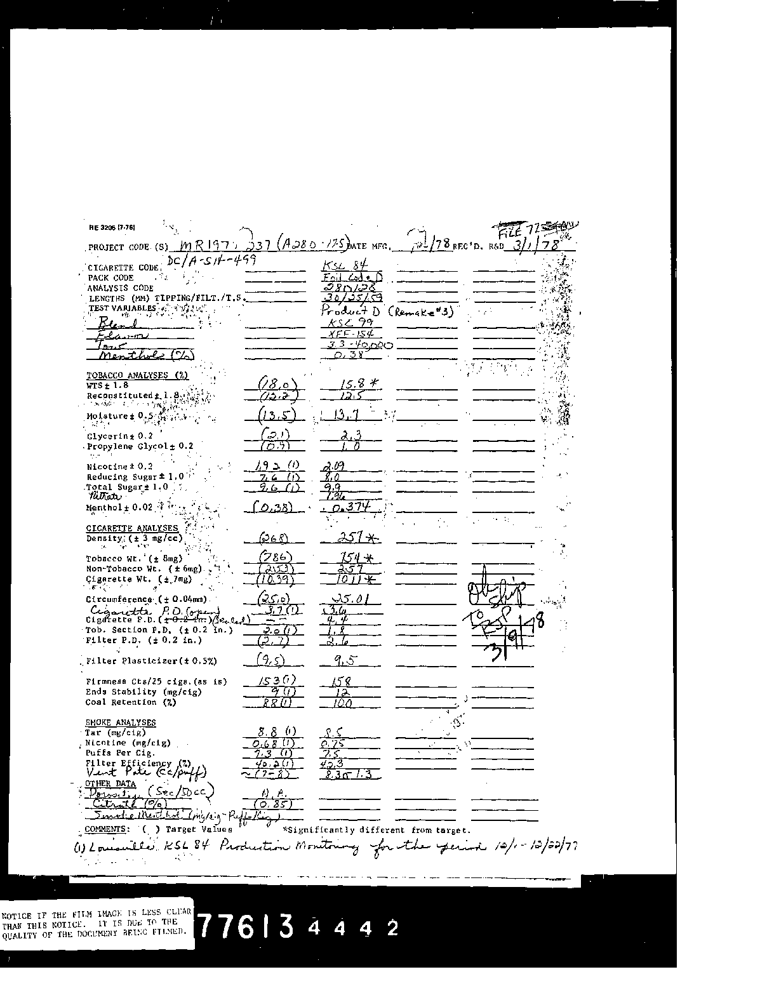 RE 3206 [7-76]
FILE
PROJECT CODE (S) MR1977, 237 (A280-175) DATE MFG. 2/78 REC'D. R&D 3/1/78
CIGARETTE CODE DC/A-SH-499 KSL 84
PACK CODE Foil Code D
ANALYSIS CODE
LENGTHS (MM) TIPPING/FILT./T.S. 30/25/59
TEST VARIABLES Product D (Remake #3)
Blend KSL 99
Flavor XFF-154
Tow 3.3-40,000
Menthol (%) 0.38
TOBACCO ANALYSES (%)
WTS ± 1.8 (18.0) 15.8 *
Reconstituted ± 1.8 (12.2) 12.5
Moisture ± 0.5 (13.5) 13.7
Glycerin ± 0.2 (2.1) 2.3
Propylene Glycol ± 0.2 (0.9) 1.0
Nicotine ± 0.2 1.92 (1) 2.09
Reducing Sugar ± 1.0 7.6 (1) 8.0
Total Sugar ± 1.0 9.6 (1) 9.9
Nitrate
Menthol ± 0.02 (0.38) 0.374
CIGARETTE ANALYSES
Density (± 3 mg/cc) (268) 257*
Tobacco Wt. (± 8mg) (786) 754 *
Non-Tobacco Wt. (± 6mg) (253) 257
Cigarette Wt. (± 7mg) (1039) 1011*
Circumference (± 0.04mm) (25.0) 25.01
Cigarette P.D. (open) 3.7 (1) 3.6
Cigarette P.D. (± 0.2 in.) (Sealed) -- 4.4
Tob. Section P.D. (± 0.2 in.) 2.0 (1) 1.8
Filter P.D. (± 0.2 in.) (2.7) 2.6
Filter Plasticizer (± 0.5%) (9.5) 9.5
Firmness Cts/25 cigs. (as is) 153 (1) 158
Ends Stability (mg/cig) 9 (1) 12
Coal Retention (%) 88 (1) 100
Ok Ship
TO RSP
3/9/78
SMOKE ANALYSES
Tar (mg/cig) 8.8 (1) 8.5
Nicotine (mg/cig) 0.68 (1) 0.75
Puffs Per Cig. 7.3 (1) 7.5
Filter Efficiency (%) 40.2 (1) 42.3
Vent Rate (cc/puff) ~(7-8) 8.3 ± 1.3
OTHER DATA
Porosity (Sec/50cc) N.A.
Citrate (%) (0.85)
Smoke Menthol (mg/cig-Puffs/Cig)
COMMENTS: ( ) Target Values *Significantly different from target.
(1) Louisville KSL 84 Production Monitoring for the period 12/1-12/22/77
NOTICE IF THE FILM IMAGE IS LESS CLEAR
THAN THIS NOTICE. IT IS DUE TO THE
QUALITY OF THE DOCUMENT BEING FILMED.
776134442